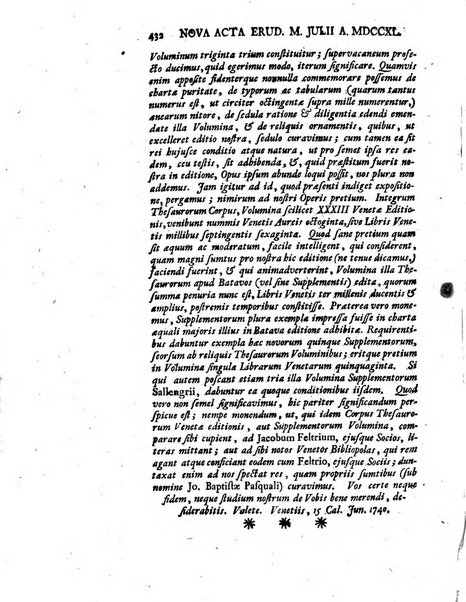 432 NOVA ACTA ERUD. M. JULII A. MDCCXL.
Voluminum triginta trium constituitur; supervacaneum profe-
cto ducimus, quid egerimus modo, iterum significare. Quamvis
enim apposite fidenterque nonnulla commemorare possemus de
chartæ puritate, de typorum ac tabularum (quarum tantus
numerus est, ut circiter octingentæ supra mille numerentur,)
ænearum nitore, de sedula ratione & diligentia edendi emen-
date illa Volumina, & de reliquis ornamentis, quibus, ut
excelleret editio nostra, sedulo curavimus; cum tamen ea sit
rei hujusce conditio atque natura, ut pro semet ipsa res ea-
dem, ceu testis, sit adhibenda, & quid præstitum fuerit no-
stra in editione, Opus ipsum abunde loqui possit, nos plura non
addemus. Jam igitur ad id, quod præsenti indiget expositio-
ne, pergamus; nimirum ad nostri Operis pretium. Integrum
Thesaurorum Corpus, Volumina scilicet XXXIII Venetæ Editio-
nis, venibunt nummis Venetis Aureis octoginta, sive Libris Vene-
tis millibus septingentis sexaginta. Quod sane pretium quam
sit æquum ac moderatum, facile intelligent, qui considerent,
quam magni sumtus pro nostra hic editione (ne tenue dicamus,)
faciendi fuerint, & qui animadverterint, Volumina illa The-
saurorum apud Batavos (vel sine Supplementis) edita, quorum
summa penuria nunc est, Libris Venetis ter millenis ducentis &
amplius, postremis temporibus constitisse. Præterea vero mone-
mus, Supplementorum plura exempla impressa fuisse in charta
æquali majoris illius in Batava editione adhibitæ. Requirenti-
bus dabuntur exempla hæc novorum Supplementorum,
seorsum ab reliquis Thesaurorum Voluminibus; eritque pretium
in Volumina singula Librarum Venetarum quinquaginta. Si
qui autem poscant etiam tria illa Volumina Supplementorum
Sallengrii, dabuntur ea quoque conditionibus iisdem. Quod
vero non semel significavimus, hic pariter significandum per-
spicue est; nempe monendum, ut, qui idem Corpus Thesauro-
rum Venetæ editionis, aut Supplementorum Volumina, com-
parare sibi cupient, ad Jacobum Feltrium, ejusque Socios, li-
teras mittant; aut sibi notos Venetos Bibliopolas, qui rem
agant atque conficiant eodem cum Feltrio, ejusque Sociis; dun-
taxat enim ad nos spectat res, quam propriis sumtibus (sub
nomine Jo. Baptistæ Pasquali) curavimus. Vos certe neque
fidem, neque studium nostrum de Vobis bene merendi, de-
siderabitis. Valete. Venetiis, 15 Cal. Jun. 1740.
* * *